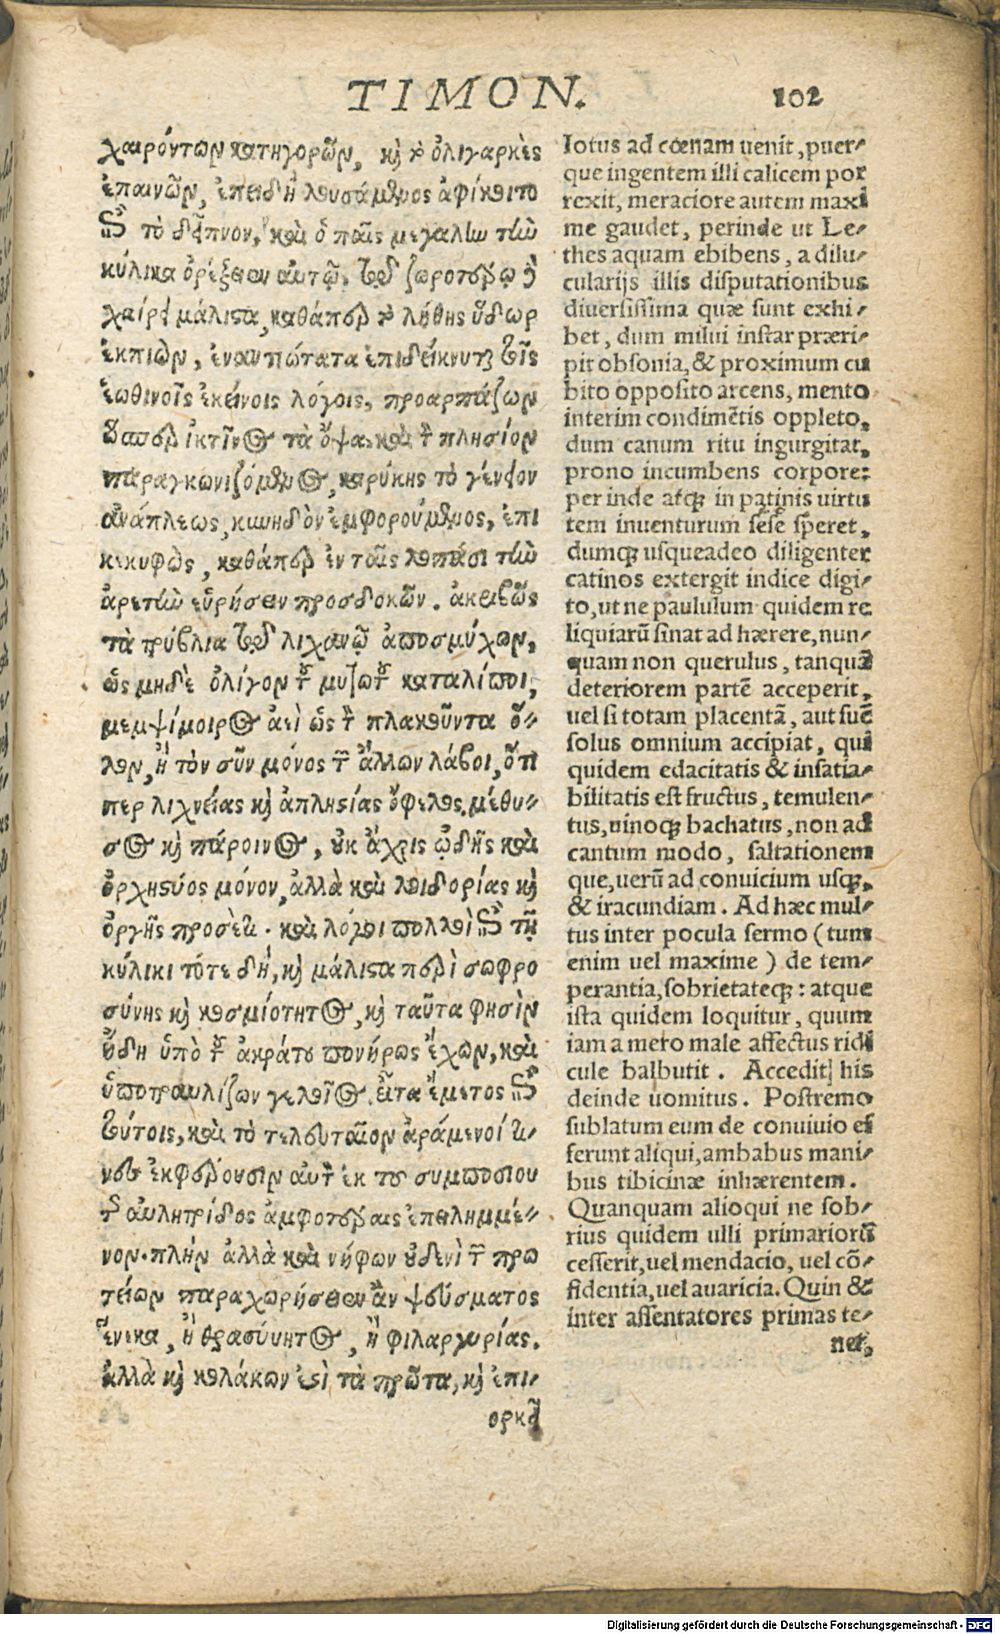 TIMON.
102
χαιρόντων κατηγορῶν, καὶ τὸ ὀλιγαρκὲς
ἐπαινῶν, ἐπειδὴ λουσάμενος ἀφίκοιτο
ἐπὶ τὸ δεῖπνον, καὶ ὁ παῖς μεγάλην τὴν
κύλικα ὀρέξειεν αὐτῷ, τῷ ζωροτέρῳ δὲ
χαίρει μάλιστα, καθάπερ τὸ λήθης ὕδωρ
ἐκπιὼν, ἐναντιώτατα ἐπιδείκνυται τοῖς
ἑωθινοῖς ἐκείνοις λόγοις, προαρπάζων
ὥσπερ ἰκτῖνος τὰ ὄψα, καὶ τὸν πλησίον
παραγκωνιζόμενος, καρύκης τὸ γένειον
ἀνάπλεως, κυνηδὸν ἐμφορούμενος, ἐπι
κεκυφὼς, καθάπερ ἐν ταῖς λοπάσι τὴν
ἀρετὴν εὑρήσειν προσδοκῶν. ἀκριβῶς
τὰ τρύβλια τῷ λιχανῷ ἀποσμύχων,
ὡς μηδὲ ὀλίγον τοῦ μυττωτοῦ καταλίποι,
μεμψίμοιρος ἀεὶ ὡς τὸν πλακοῦντα ὅ-
λον, ἢ τὸν σῦν μόνος τῶν ἄλλων λάβοι, ὅτι
περ λιχνείας καὶ ἀπληστίας ὄφελος. μέθυ-
σος καὶ πάροινος, οὐκ ἄχρις ᾠδῆς καὶ
ὀρχηστύος μόνον, ἀλλὰ καὶ λοιδορίας καὶ
ὀργῆς προσέτι. καὶ λόγοι πολλοὶ ἐπὶ τῇ
κύλικι τότε δὴ, καὶ μάλιστα περὶ σωφρο
σύνης καὶ κοσμιότητος, καὶ ταῦτα φησὶν
ἤδη ὑπὸ τοῦ ἀκράτου πονήρως ἔχων, καὶ
ὑποτραυλίζων γελοῖος. εἶτα ἔμετος ἐπὶ
τούτοις, καὶ τὸ τελευταῖον ἀράμενοί τι-
νες ἐκφέρουσιν αὐτὸν ἐκ τοῦ συμποσίου
τῆς αὐλητρίδος ἀμφοτέραις ἐπειλημμέ-
νον. πλὴν ἀλλὰ καὶ νήφων οὐδενὶ τῶν πρω
τείων παραχωρήσειεν ἂν ψεύσματος
ἕνεκα, ἢ θρασύτητος, ἢ φιλαργυρίας.
ἀλλὰ καὶ κολάκων ἐστὶ τὰ πρῶτα, καὶ ἐπι-
ορκεῖ
lotus ad cœnam uenit, puer-
que ingentem illi calicem por
rexit, meraciore autem maxi
me gaudet, perinde ut Le-
thes aquam ebibens, a dilu-
cularijs illis disputationibus
diuersissima quæ sunt exhi-
bet, dum milui instar præri-
pit obsonia, & proximum cu
bito opposito arcens, mento
interim condimētis oppleto,
dum canum ritu ingurgitat,
prono incumbens corpore:
per inde atq; in patinis uirtu
tem inuenturum sese speret,
dumq; usqueadeo diligenter
catinos extergit indice digi-
to, ut ne paululum quidem re
liquiarū sinat ad hærere, nun-
quam non querulus, tanquā
deteriorem partē acceperit,
uel si totam placentā, aut suē
solus omnium accipiat, qui
quidem edacitatis & insatia-
bilitatis est fructus, temulen-
tus, uinoq; bachatus, non ad
cantum modo, saltationem
que, uerū ad conuicium usq;,
& iracundiam. Ad hæc mul-
tus inter pocula sermo (tum
enim uel maxime) de tem-
perantia, sobrietateq;: atque
ista quidem loquitur, quum
iam a mero male affectus ridi
cule balbutit. Accedit his
deinde uomitus. Postremo
sublatum eum de conuiuio ef
ferunt aliqui, ambabus mani-
bus tibicinæ inhærentem.
Quanquam alioqui ne sob-
rius quidem ulli primariorū
cesserit, uel mendacio, uel cō-
fidentia, uel auaricia. Quin &
inter assentatores primas te-
net,
Digitalisierung gefördert durch die Deutsche Forschungsgemeinschaft - DFG